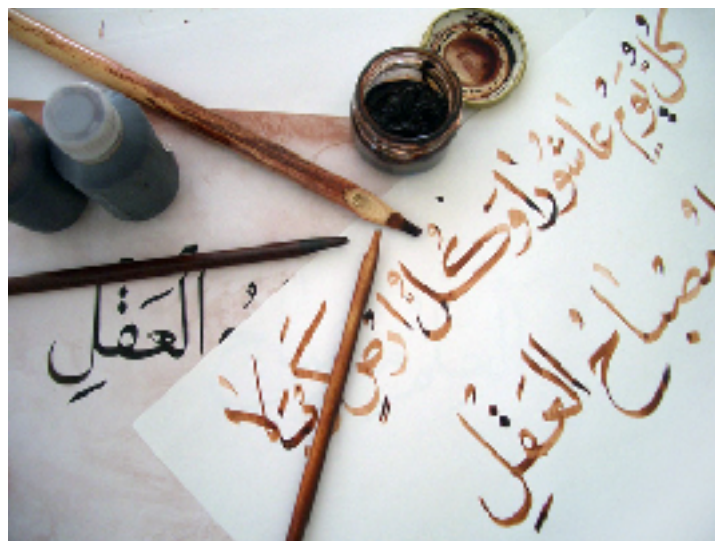 كُلُّ يَومٍ عَاشُورَا وَكُلُّ اَرضٍ كَربَلَا
مِصْبَاحُ العَقلِ
العَقلِ